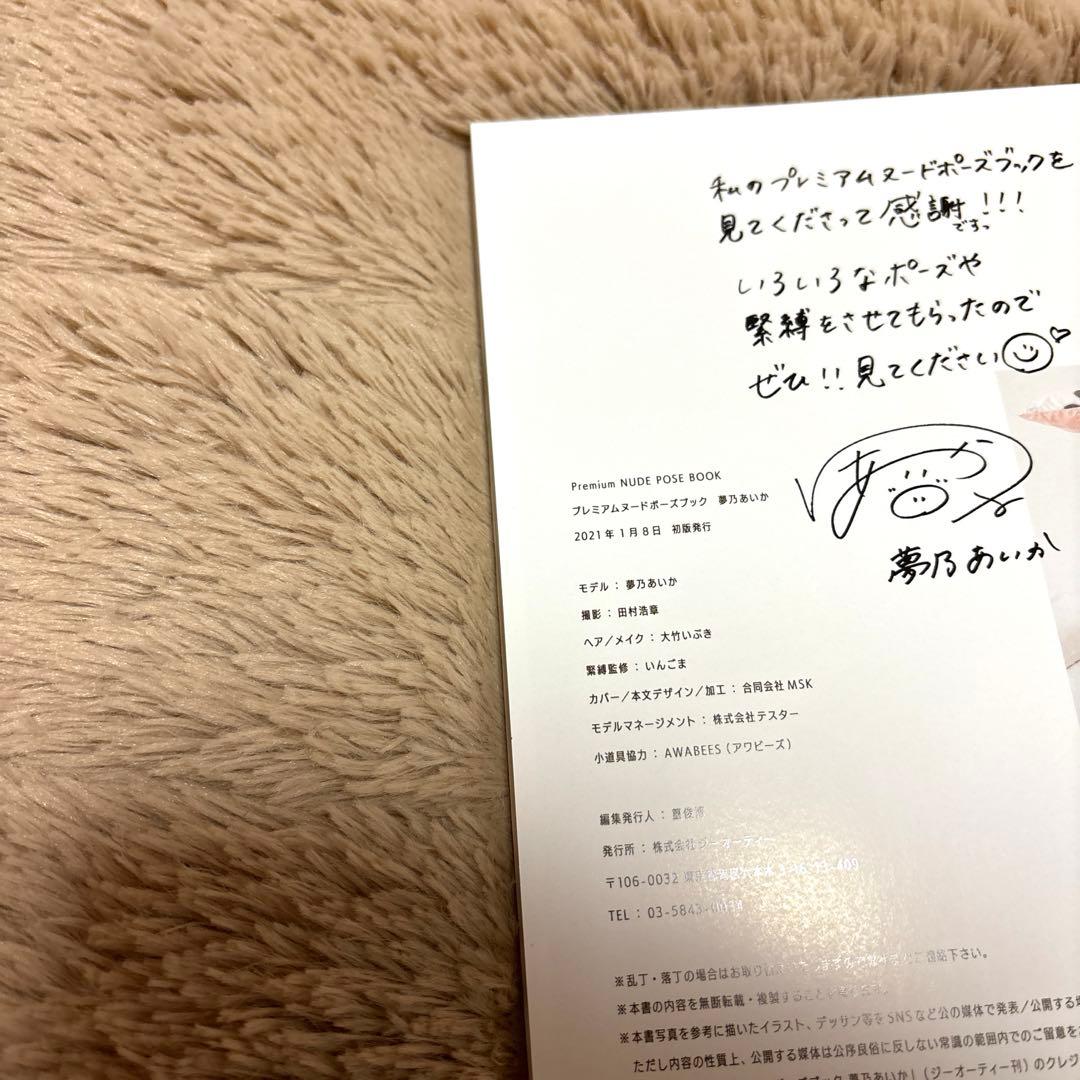 私のプレミアムヌードポーズブックを
見てくださって感謝ですっ!!!
いろいろなポーズや
緊縛をさせてもらったので
ぜひ!!見てください
あいか
夢乃あいか
Premium NUDE POSE BOOK
プレミアムヌードポーズブック　夢乃あいか
2021年1月8日　初版発行
モデル：夢乃あいか
撮影：田村浩章
ヘア／メイク：大竹いぶき
緊縛監修：いんごま
カバー／本文デザイン／加工：合同会社MSK
モデルマネージメント：株式会社テスター
小道具協力：AWABEES（アワビーズ）
編集発行人：
発行所：株式会社ジーオーティー
〒106-0032 東京都港区六本木3-16-13-409
TEL：03-5843-
※乱丁・落丁の場合はお取り ご連絡下さい。
※本書の内容を無断転載・複製することを
※本書写真を参考に描いたイラスト、デッサン等をSNSなど公の媒体で発表／公開する
ただし内容の性質上、公開する媒体は公序良俗に反しない常識の範囲内でのご留意を
ズブック 夢乃あいか」（ジーオーティー刊）のクレジ